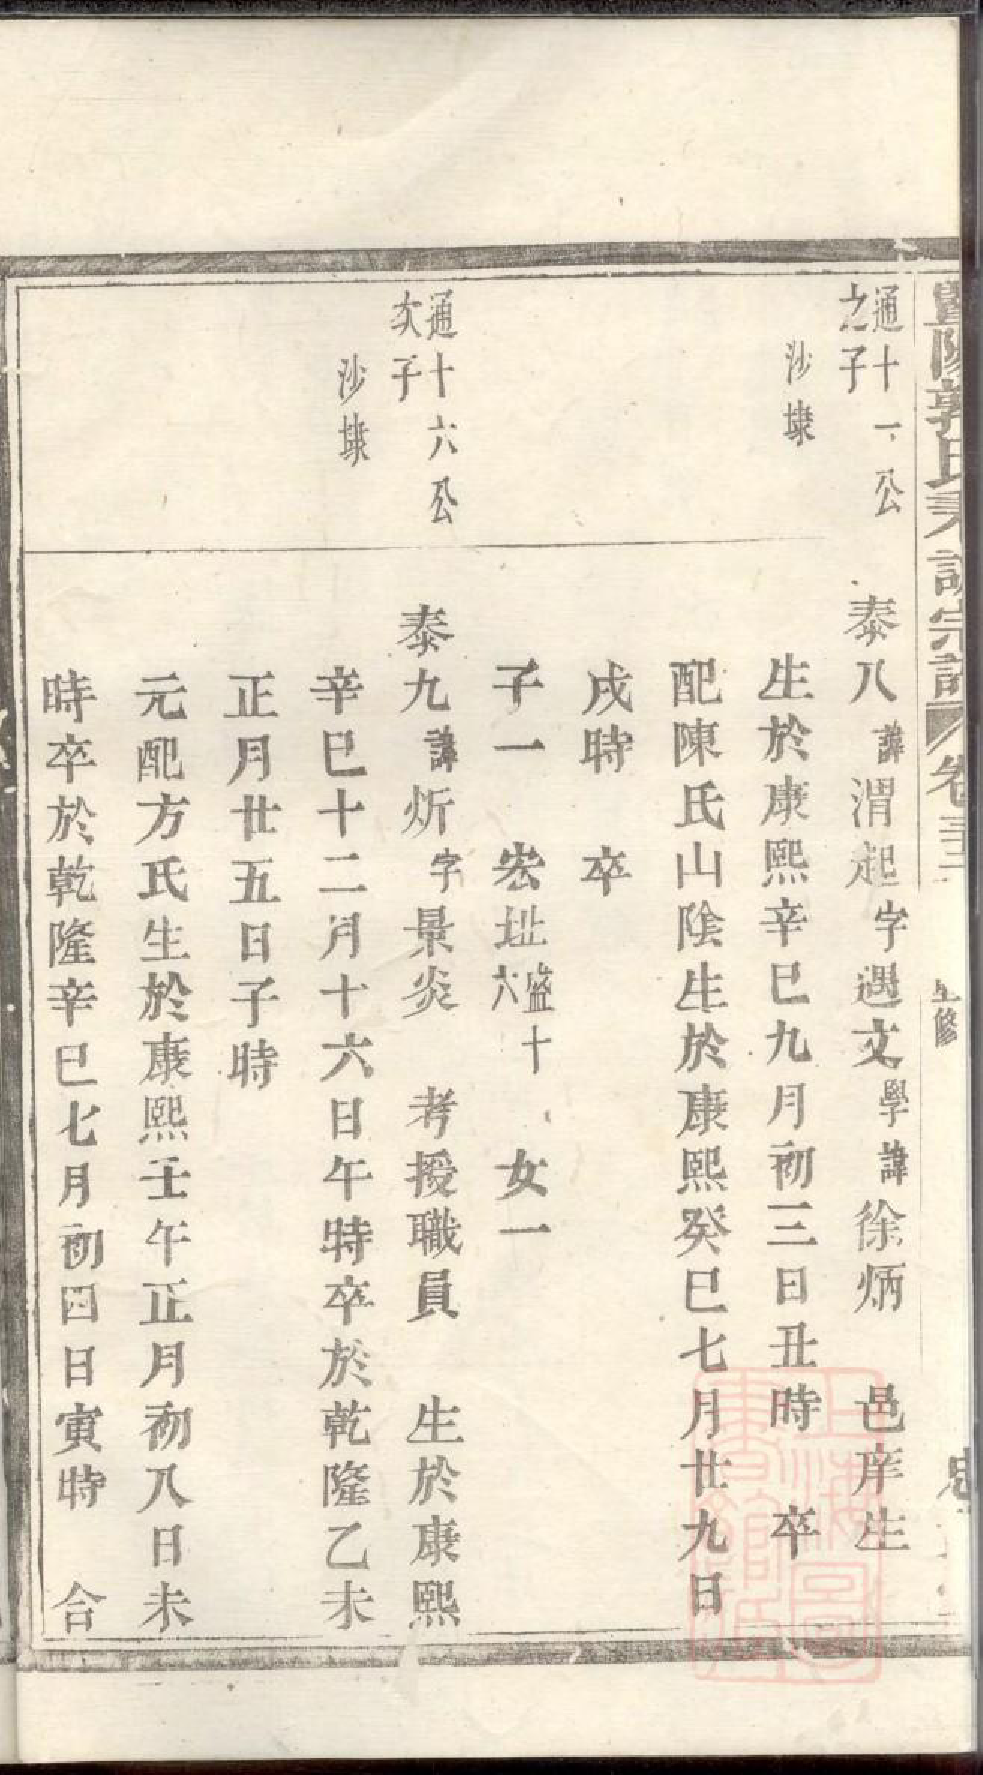 暨陽郭氏
宗譜
卷三
通十一公
之子
沙埭
泰八諱渭起字遇文學諱徐炳　邑庠生
生於康熙辛巳九月初三日丑時　卒
配陳氏山陰生於康熙癸巳七月廿九日
戌時　卒
子一　宏址盛十六　女一
通十六公
次子
沙埭
泰九諱炘字景炎　考授職員　生於康熙
辛巳十二月十六日午時卒於乾隆乙未
正月廿五日子時
元配方氏生於康熙壬午正月初八日未
時卒於乾隆辛巳七月初四日寅時　合